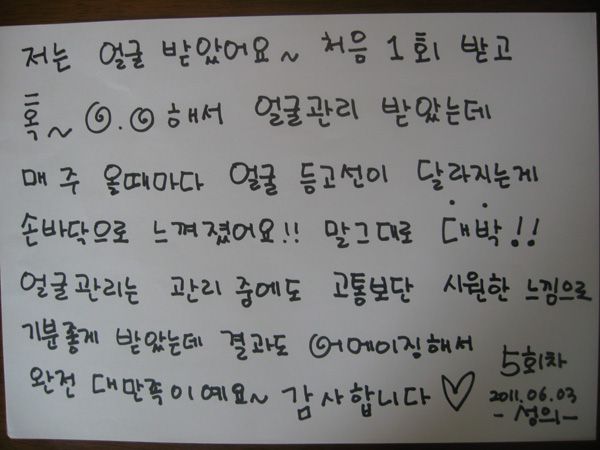 저는 얼굴 받았어요~ 처음 1회 받고
혹~ @.@해서 얼굴관리 받았는데
매 주 올때마다 얼굴 등고선이 달라지는게
손바닥으로 느껴졌어요!! 말그대로 대박!!
얼굴관리는 관리 중에도 고통보단 시원한 느낌으로
기분좋게 받았는데 결과도 어메이징해서
완전 대만족이예요~ 감사합니다♡
5회차
2011.06.03
-성의-